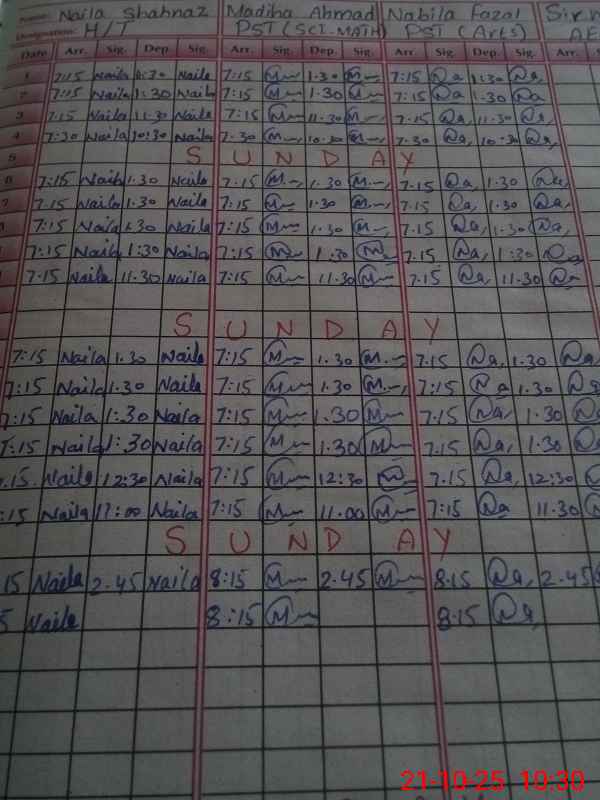 Name: Naila Shahnaz Madiha Ahmad Nabila Fazal Sir
Designation: H/T PST (SCI-MATH) PST (Arts)
Date Arr. Sig. Dep. Sig. Arr. Sig. Dep. Sig. Arr. Sig. Dep. Sig. Arr.
1 7:15 Naila 1:30 Naila 7:15 M 1.30 M 7:15 Na, 1:30 Na,
2 7:15 Naila 1:30 Naila 7:15 M 1.30 M 7:15 Na 1.30 Na
3 7:15 Naila 11.30 Naila 7:15 M 11.30 M 7.15 Na, 11.30 Na,
4 7:30 Naila 10:30 Naila 7.30 M 10.30 M 7.30 Na, 10.30 Na,
5 S U N D A Y
6 7:15 Naila 1.30 Naila 7.15 M 1.30 M 7.15 Na, 1.30 Na,
7 7.15 Naila 1.30 Naila 7:15 M 1.30 M 7.15 Na, 1.30 Na,
7:15 Naila 1.30 Naila 7:15 M 1.30 M 7.15 Na, 1.30 Na,
7:15 Naila 1:30 Naila 7:15 M 1:30 M 7.15 Na, 1:30 Na
7.15 Naila 11.30 Naila 7:15 M 11.30 M 7.15 Na, 11.30 Na
S U N D A Y
7:15 Naila 1.30 Naila 7:15 M 1.30 M 7.15 Na, 1.30 Na,
7:15 Naila 1.30 Naila 7:15 M 1.30 M 7:15 Na 1.30 Na
7:15 Naila 1:30 Naila 7:15 M 1.30 M 7.15 Na, 1.30
7:15 Naila 1:30 Naila 7:15 M 1.30 M 7.15 Na, 1.30
.15 Naila 12:30 Naila 7:15 M 12:30 M 7.15 Na, 12:30
:15 Naila 11:00 Naila 7:15 M 11.00 M 7:15 Na 11.30
S U N D A Y
15 Naila 2.45 Naila 8:15 M 2.45 M 8.15 Na, 2.45
5 Naila 8:15 M 8.15 Na,
21-10-25 10:30